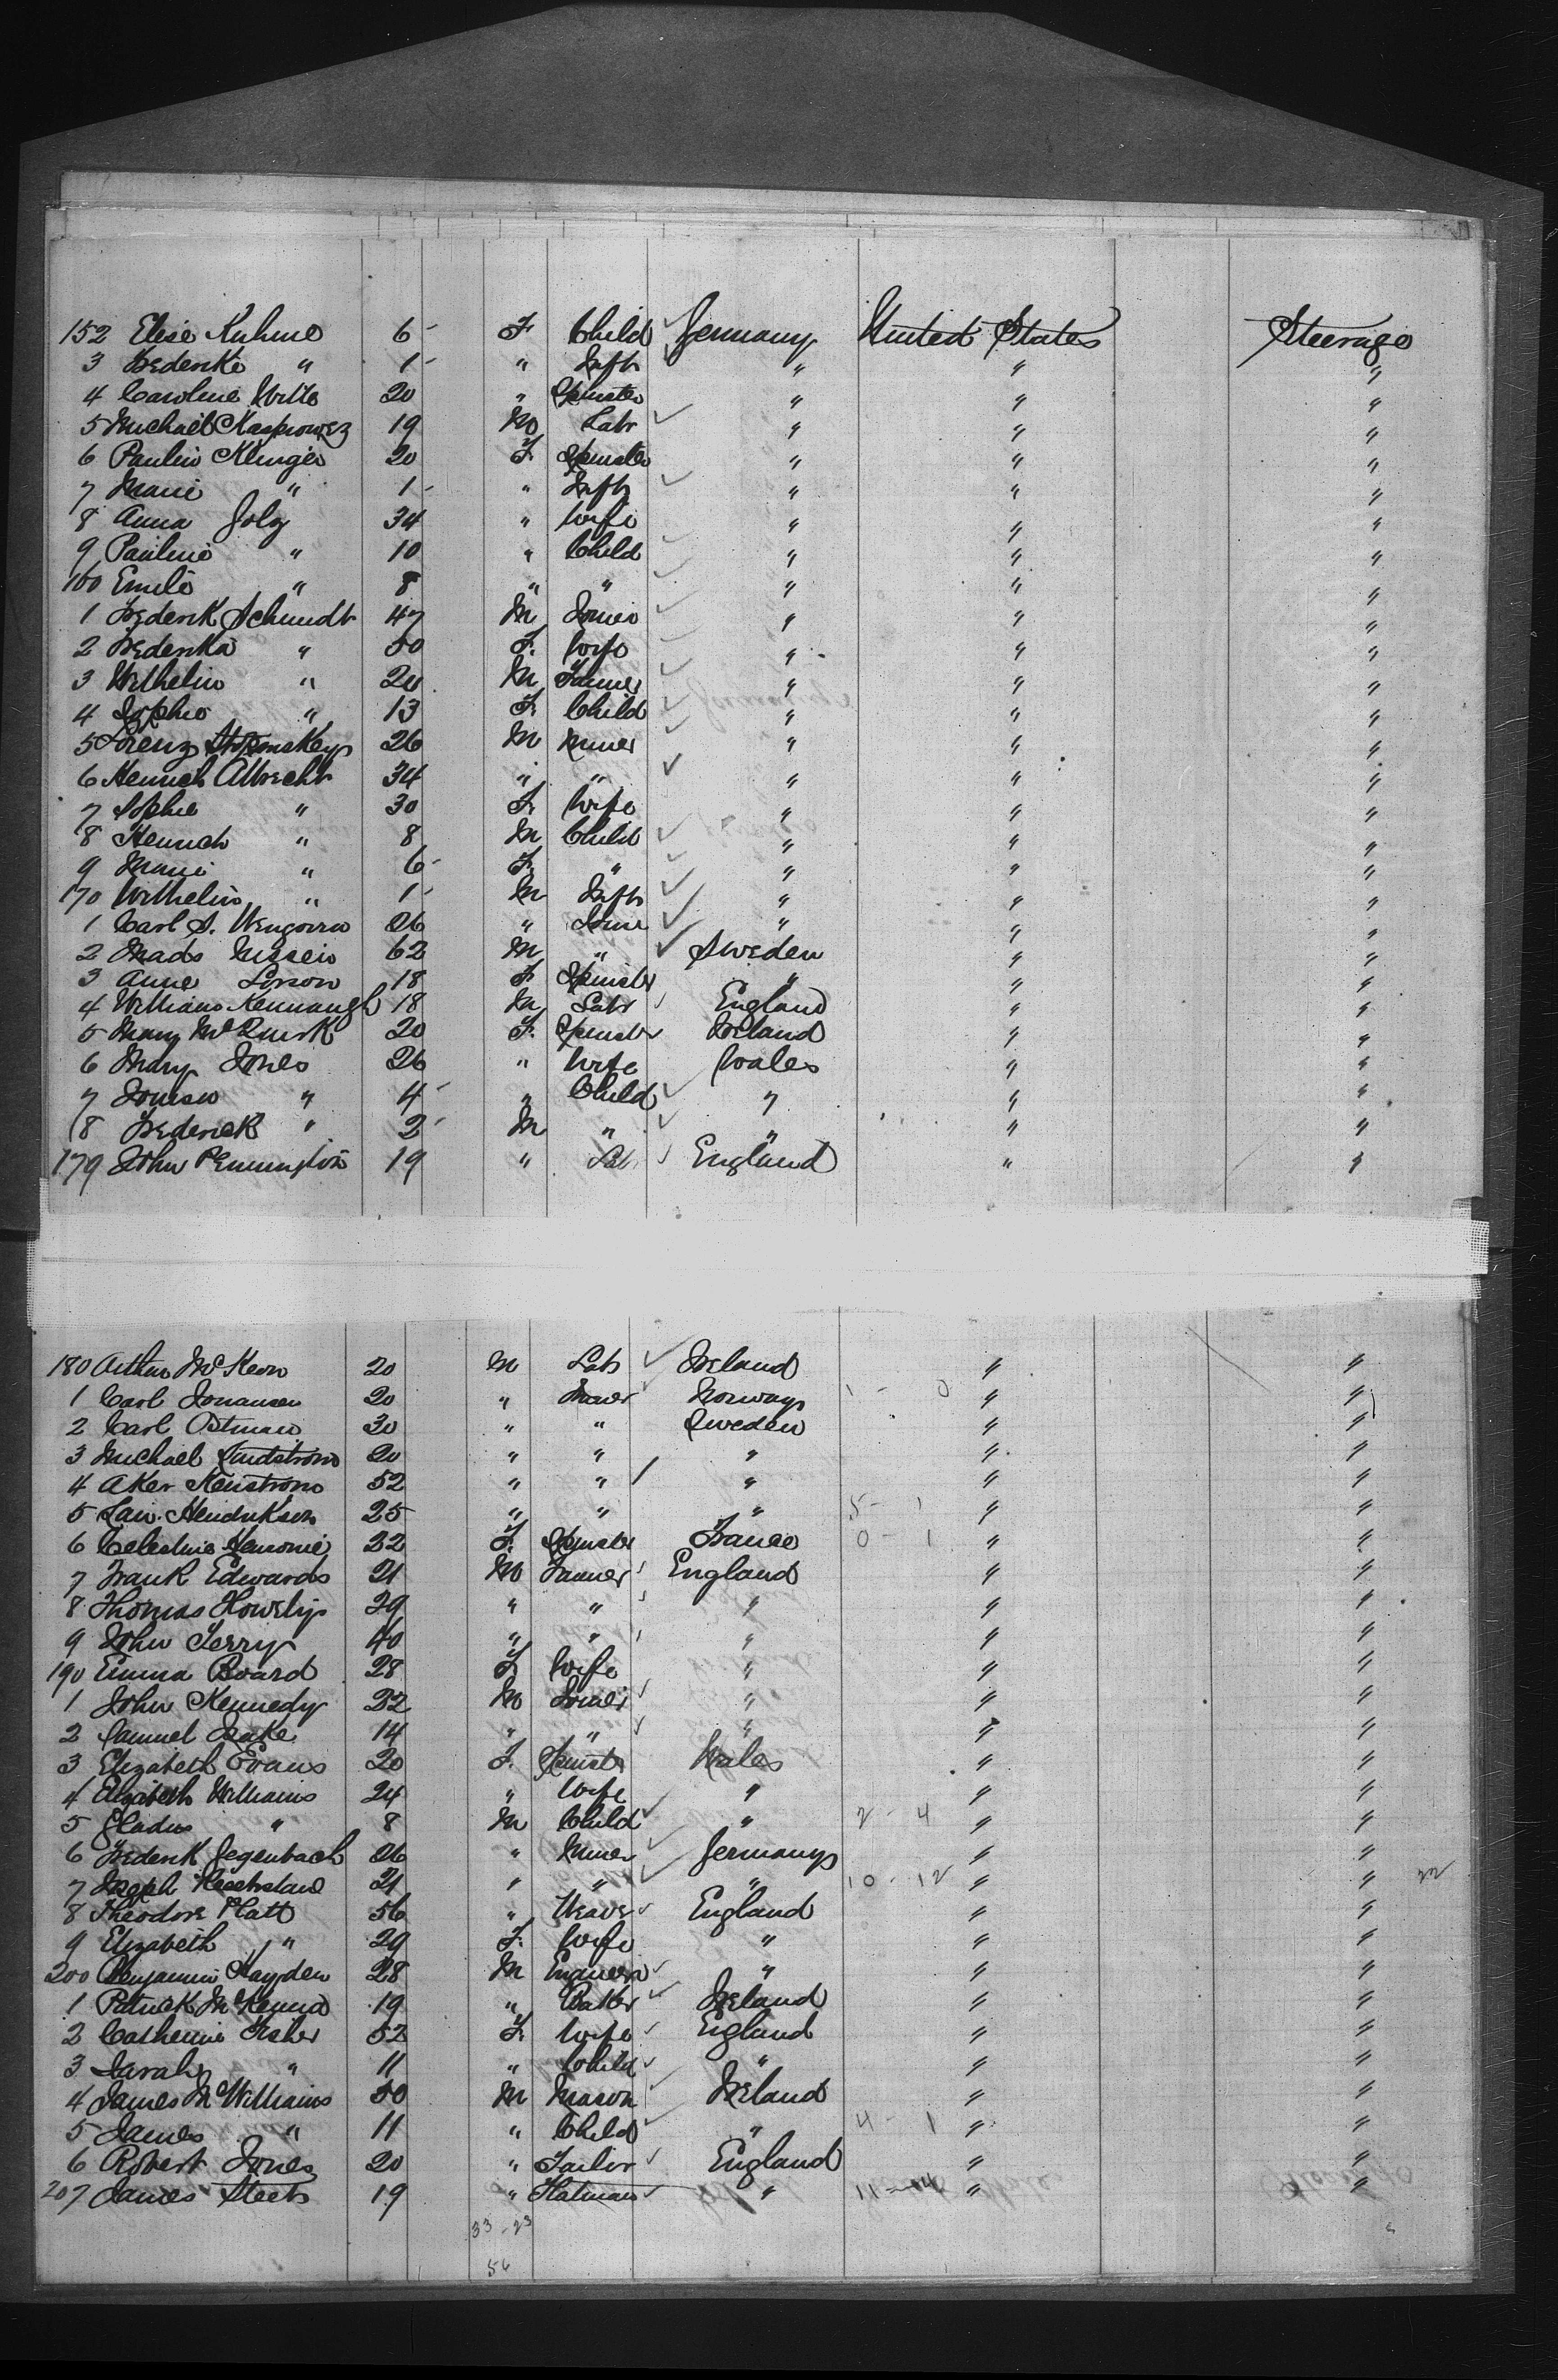 152 Elise Kuhme 6 - F Child Germany United States Steerage
3 Frederike " 1 - " Inft " " "
4 Caroline Witte 20 " Spinster " " "
5 Michael Kasprowez 19 M Labr " " "
6 Paulin Klinger 20 F Spinster " " "
7 Marie " 1 - " Inft " " "
8 Anna Joly 34 " Wife " " "
9 Pauline " 10 " Child " " "
160 Emile " 8 " " " " "
1 Frederik Schmidt 47 M Joiner " " "
2 Frederika " 50 F. Wife " " "
3 Wilhelm " 20 M Farmer " " "
4 Sophie " 13 F. Child " " "
5 Lorenz 26 M Miner " " "
6 Henrich Albrecht 34 " " " " "
7 Sophie " 30 F. Wife " " "
8 Henrich " 8 M Child " " "
9 Marie " 6 - F. " " " "
170 Wilhelm " 1 - M Inft " " "
1 Carl A. 26 " " " "
2 Mads Nissen 62 M " Sweden " "
3 Anne Larson 18 F Spinster " " "
4 William Kennaugh 18 M Labr England " "
5 Mary McQuirk 20 F. Spinster Ireland " "
6 Mary Jones 26 " Wife Wales " "
7 Louisa " 4 - " Child " " "
8 Frederick " 2 - M " " " "
179 John Pennington 19 " Labr England " "
180 Arthur McKeon 20 M Labr Ireland " "
1 Carl Johansen 20 " Miner Norway 1 - 0 " "
2 Carl Ostman 30 " " Sweden " "
3 Michael Lindstrom 20 " " " " "
4 Aker Kenstrom 52 " " " " "
5 Hendrikson 25 " " " 5 - 1 " "
6 Celestine 32 F. Spinster France 0 - 1 " "
7 Frank Edwards 21 M Farmer England " "
8 Thomas 29 " " " " "
9 John Terry 40 " " " " "
190 Emma Board 28 F Wife " " "
1 John Kennedy 32 M Joiner " " "
2 Samuel 14 " " " " "
3 Elizabeth Evans 20 F. Spinster Wales " "
4 Elizabeth Williams 24 " Wife " " "
5 Gladus " 8 M Child " 2 - 4 " "
6 Frederik Gegenbach 26 " Miner Germany " "
7 Joseph 21 " " " 10 - 12 " " 22
8 Theodore Platt 56 " Weaver England " "
9 Elizabeth " 29 F. Wife " " "
200 Benjamin Hayden 28 M Engineer " " "
1 Patrick McKenna 19 " Baker Ireland " "
2 Catherine Fisher 52 F. Wife England " "
3 Sarah " 11 " Child " " "
4 James McWilliams 50 M Mason Ireland " "
5 James " 11 " Child " 4 - 1 " "
6 Robert Jones 20 " Tailor England " "
207 James Steets 19 " " 11 - 14 " "
33 - 23
56